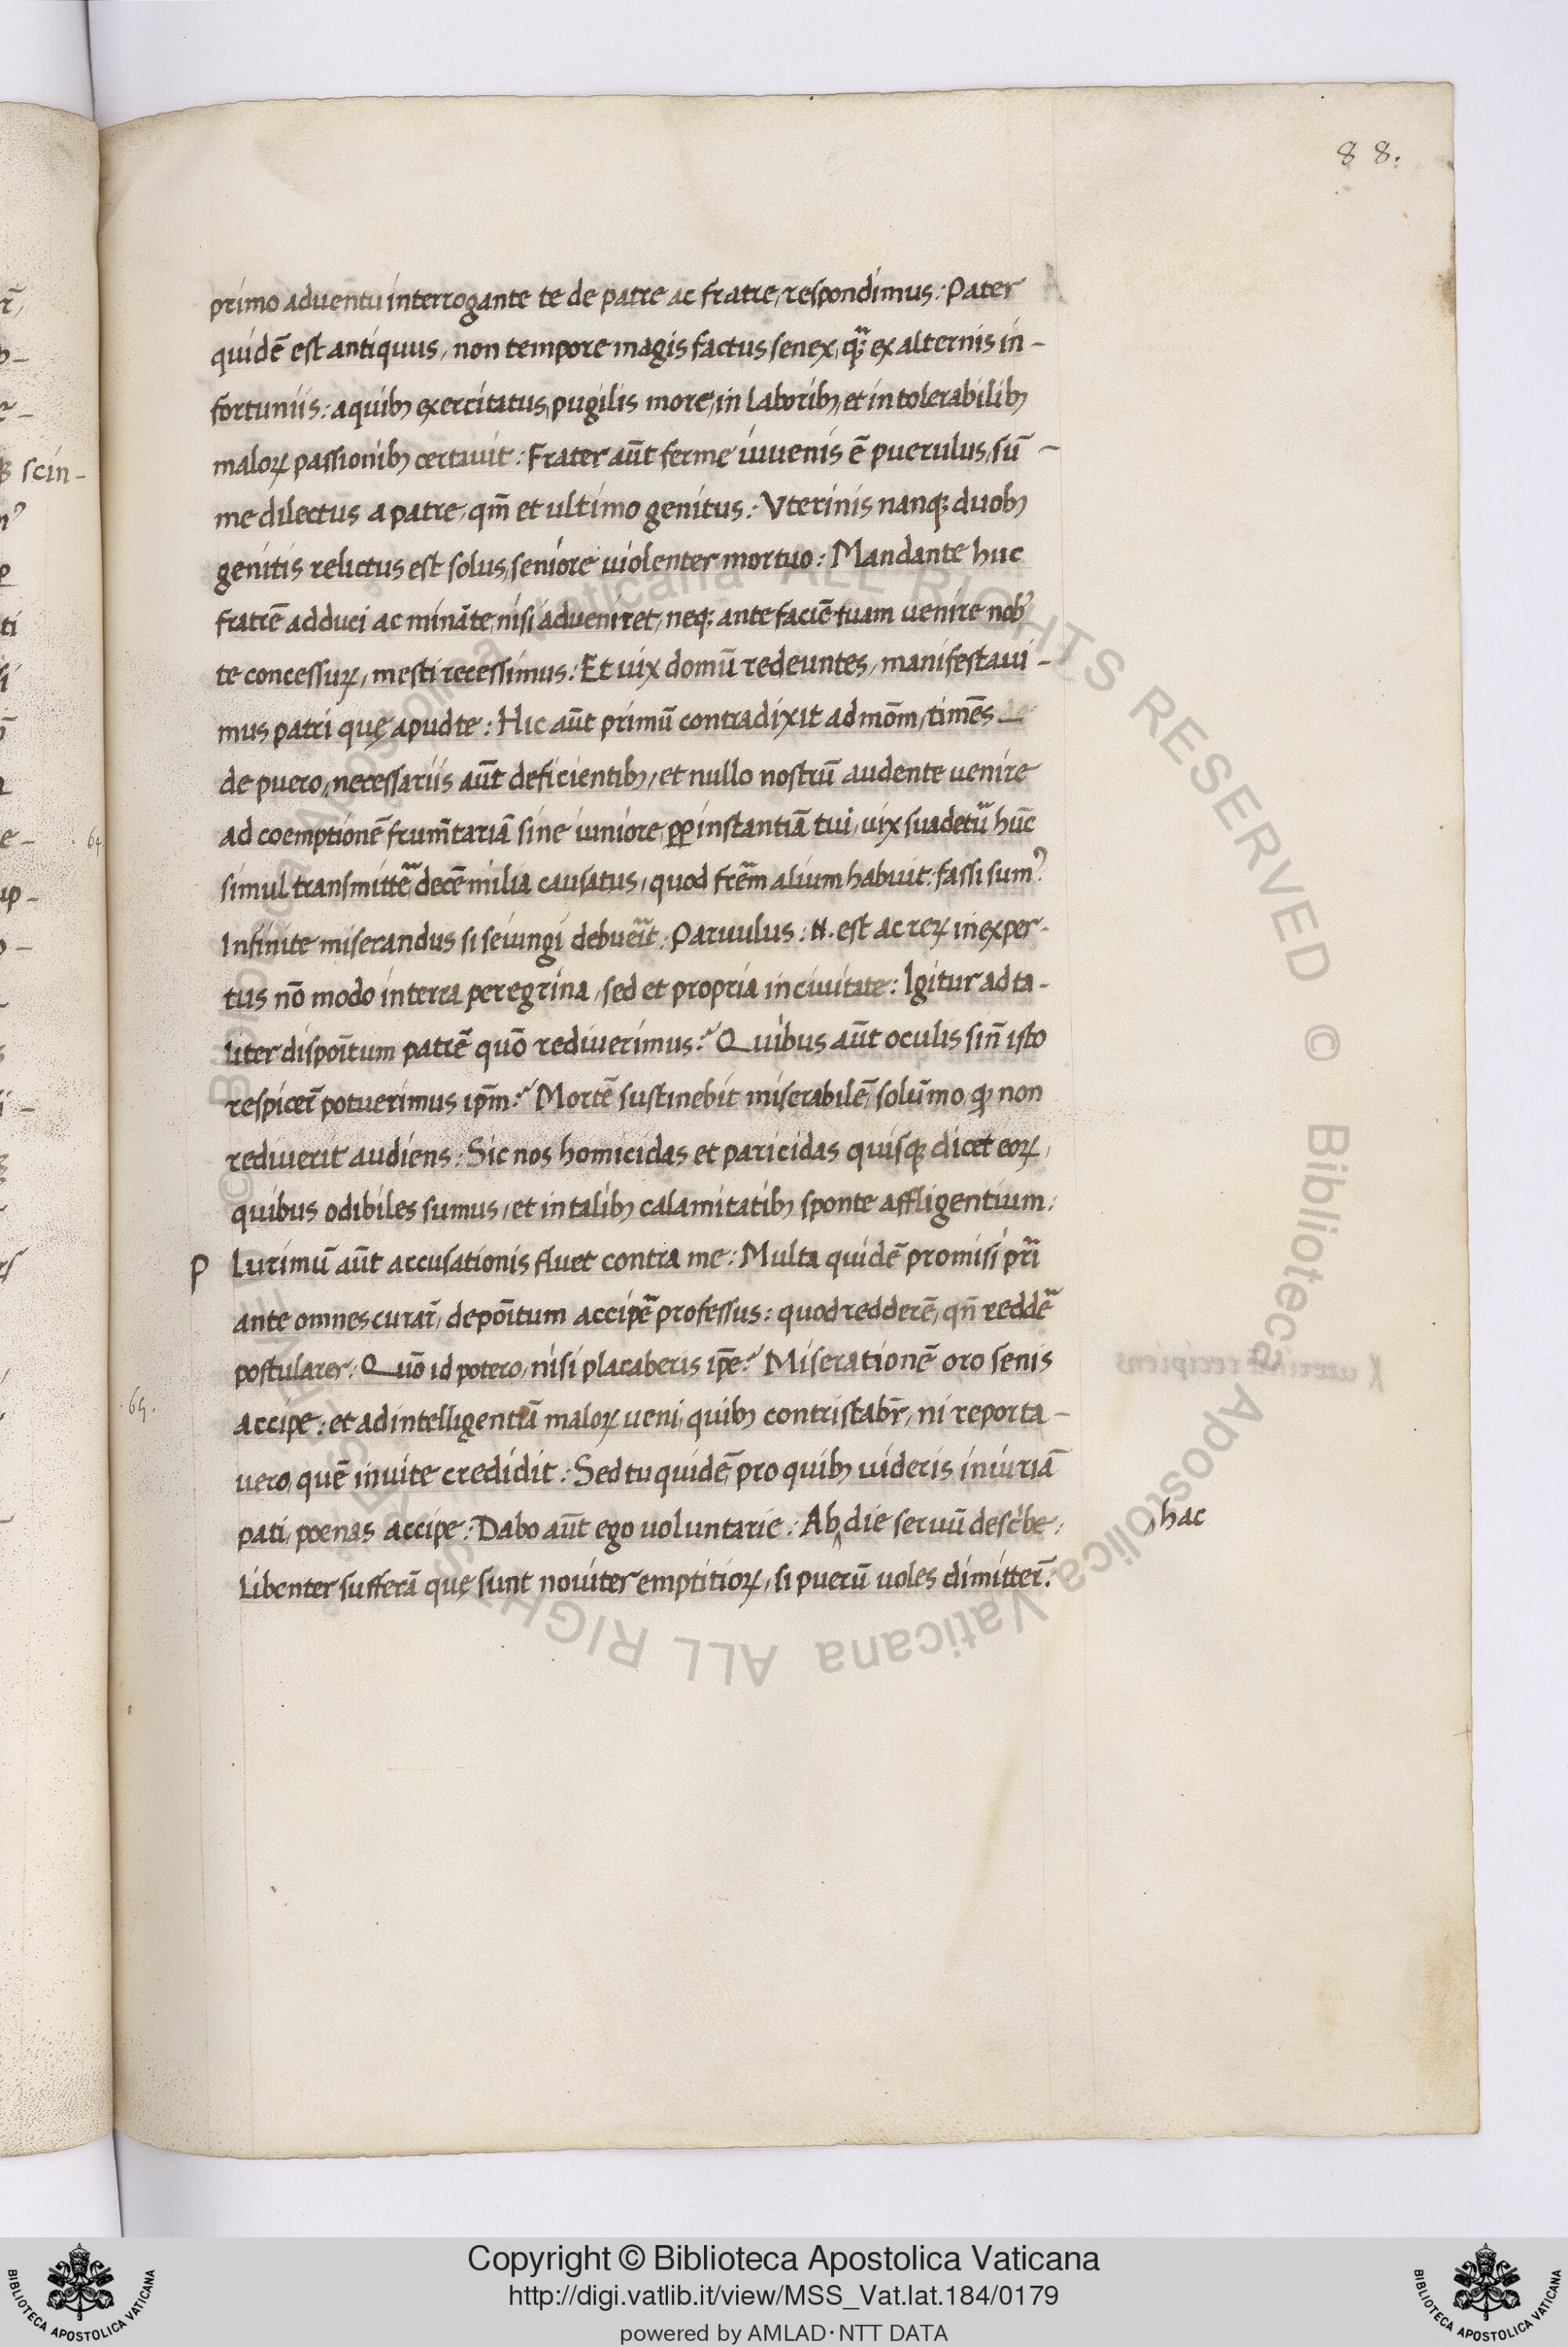 88.
primo adventu interrogante te de patre ac fratre, respondimus: Pater
quidē est antiquus, non tempore magis factus senex, qͣ ex alternis in-
fortuniis: a quibꝫ exercitatus, pugilis more, in laboribꝫ, et intolerabilibꝫ
maloꝝ passionibꝫ certavit: Frater aūt ferme iuvenis ē puerulus, sū-
me dilectus a patre, qm̄ et ultimo genitus: Vterinis nanqꝫ duobꝫ
genitis relictus est solus, seniore violenter mortuo: Mandante huc
fratrē adduci ac mināte, nisi adveniret, neqꝫ ante faciē tuam venire nobꝰ
te concessuꝝ, mesti recessimus: Et vix domū redeuntes, manifestavi-
mus patri quę apud te: Hic aūt primū contradixit admōm, timēs
de puero, necessariis aūt deficientibꝫ, et nullo nostrū audente venire
ad coemptionē frum̄tariā sine iuniore, pp̄ instantiā tui, vix suadetͬ hūc
simul transmittē decē milia causatus, quod frēm alium habuit fassi sumꝰ
Infinite miserandus si seiungi debuerit: Parvulus .N. est ac reꝝ inexper-
tus nō modo in terra peregrina, sed et propria in civitate: Igitur ad ta-
liter dispoītum patrē quō rediverimus? Quibus aūt oculis sin̄ isto
respicer̄ potuerimus ip̄m? Mortē sustinebit miserabilē, solūmo qꝫ non
rediverit audiens: Sic nos homicidas et paricidas quisqꝫ dicet eoꝝ,
quibus odibiles sumus, et in talibꝫ calamitatibꝫ sponte affligentium:
P Lurimū aūt accusationis fluet contra me: Multa quidē promisi pr̄i
ante omnes curar̄, depoītum accipē professus: quod redderē, qn̄ reddē
postularer: Quō id potero, nisi placaberis ip̄e? Miserationē oro senis
.65.
accipe: et ad intelligentiā maloꝝ veni, quibꝫ contristabr̄, ni reporta-
vero, quē invite credidit: Sed tu quidē, pro quibꝫ videris iniuriā
pati, poenas accipe: Dabo aūt ego voluntarie: Ab‸die servū descͥbe:
hac
Libenter sufferā quę sunt noviter emptitioꝝ, si puerū voles dimitter̄.
scin-
64
© Biblioteca Apostolica Vaticana ALL RIGHTS RESERVED © Biblioteca Apostolica Vaticana ALL RIGHTS RESERVED
Copyright © Biblioteca Apostolica Vaticana
http://digi.vatlib.it/view/MSS_Vat.lat.184/0179
powered by AMLAD·NTT DATA
BIBLIOTECA APOSTOLICA VATICANA
BIBLIOTECA APOSTOLICA VATICANA